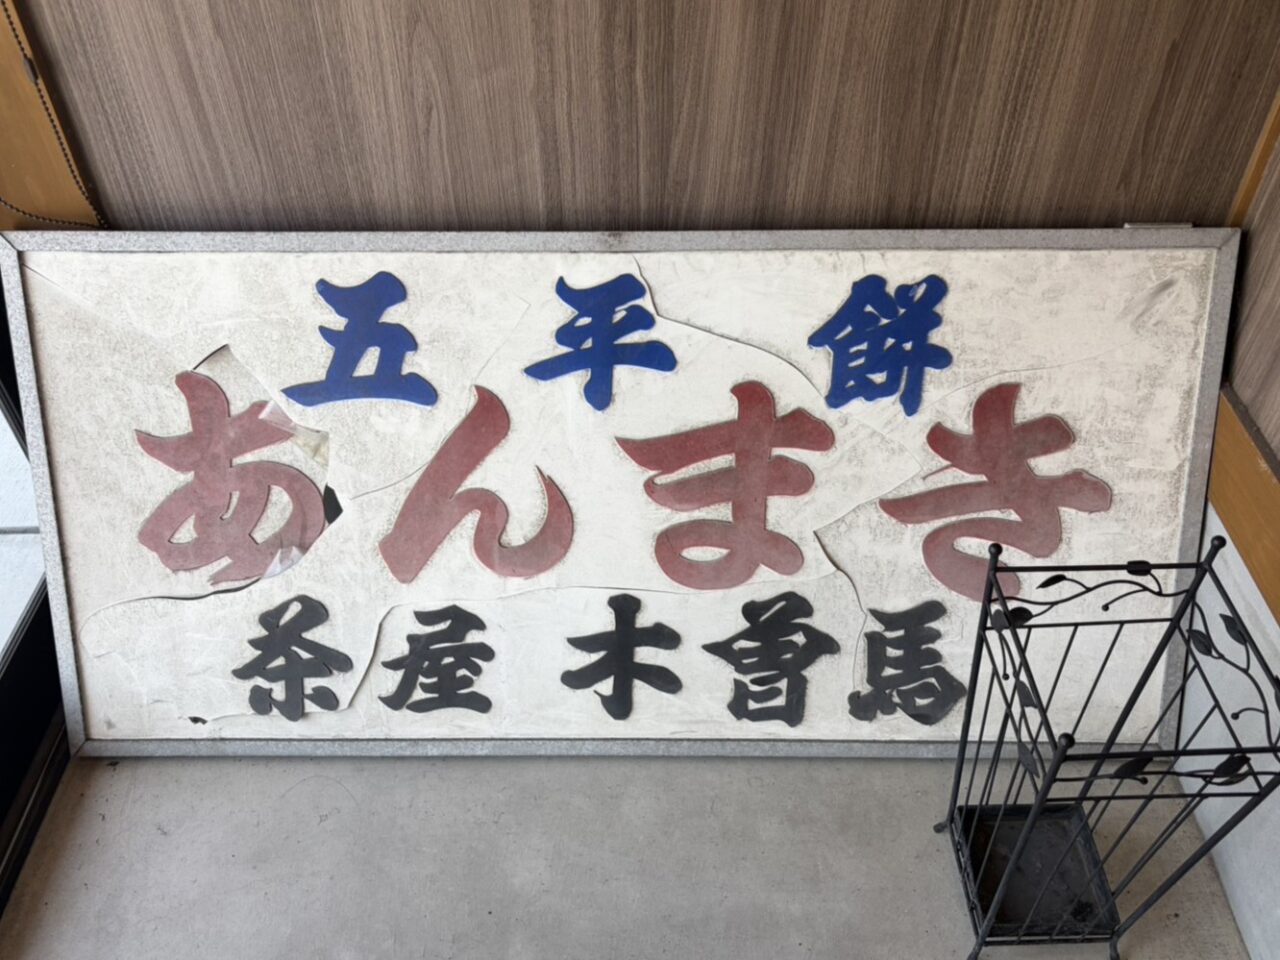 五平餅
あんまき
茶屋 木曽馬